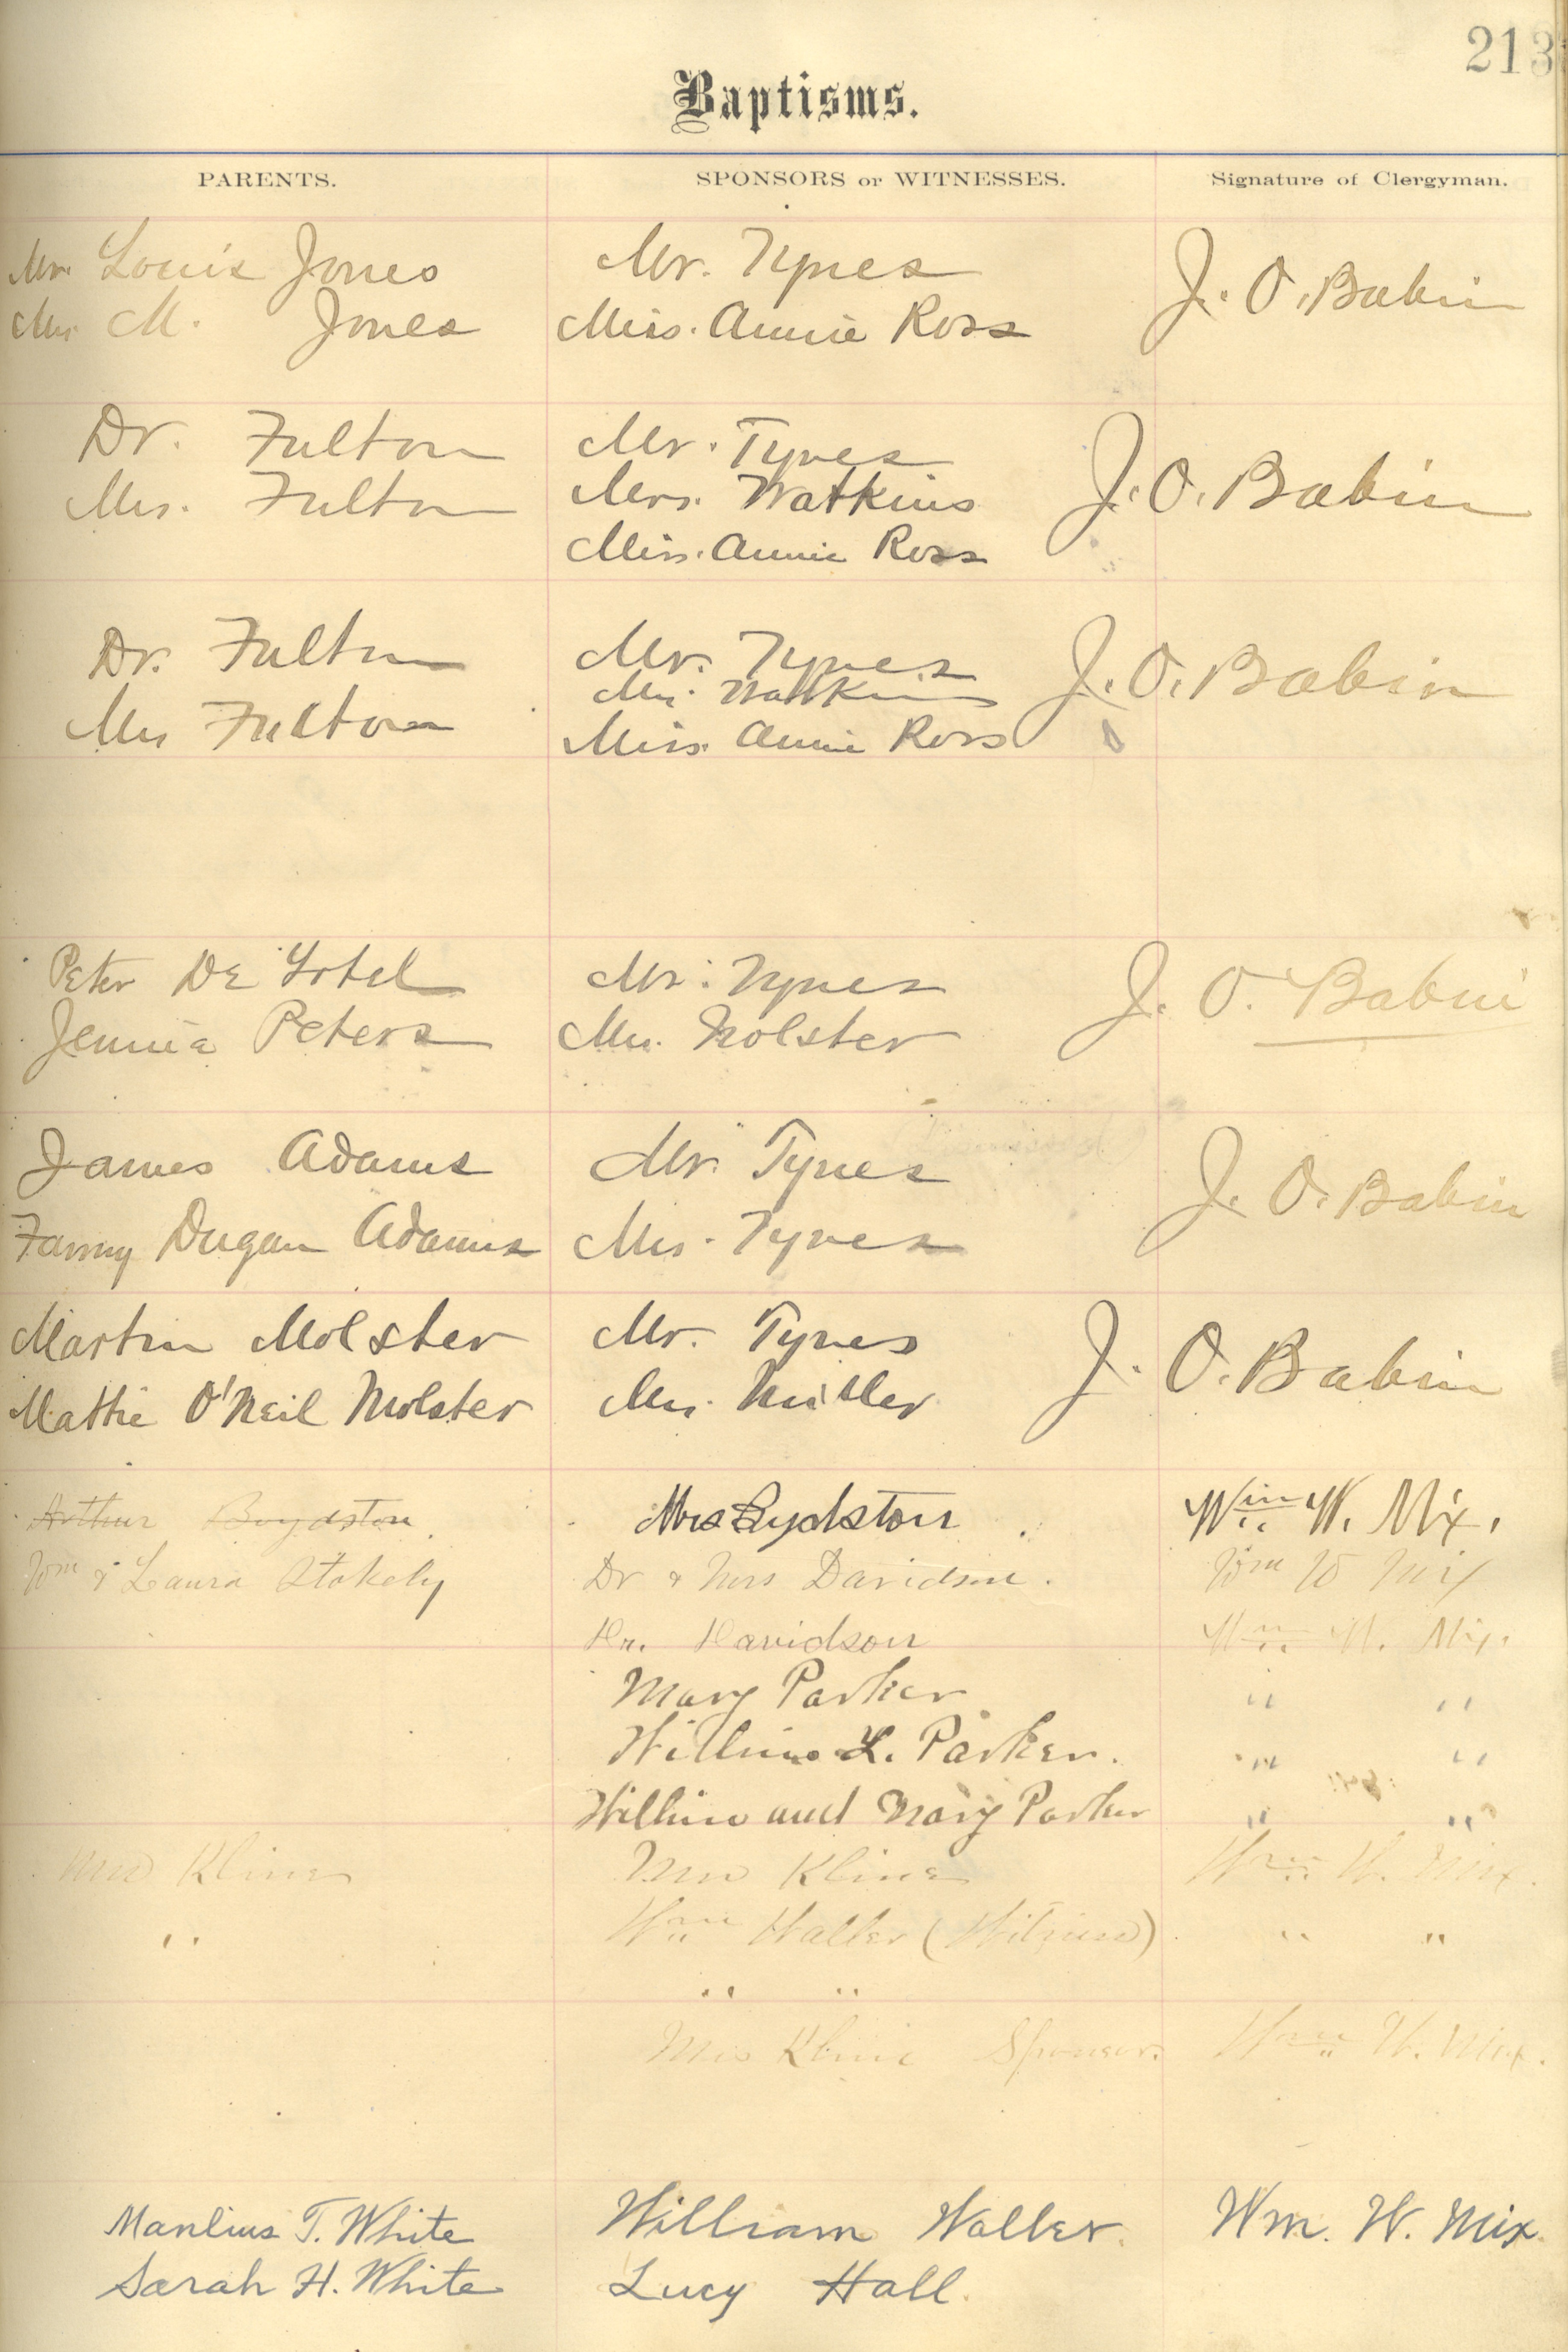 213
Baptisms.
PARENTS. SPONSORS or WITNESSES. Signature of Clergyman.
Mr. Louis Jones Mr. Tynes J. O. Babin
Mrs M. Jones Miss. Annie Ross
Dr. Fulton Mr. Tynes J. O. Babin
Mrs. Fulton Mrs. Watkins
Miss. Annie Ross
Dr. Fulton Mr. Tynes J. O. Babin
Mrs Fulton Mrs. Watkins
Miss. Annie Ross
Peter De Yotel Mr. Tynes J. O. Babin
Jennie Peters Mrs. Molster
James Adams Mr. Tynes J. O. Babin
Fanny Dugan Adams Mrs. Tynes
Martin Molster Mr. Tynes J. O. Babin
Mattie O'Neil Molster Mrs. Miller
Arthur Boydston. Mrs Boydston. Wm W. Mix.
Wm & Laura Stokely Dr & Mrs Davidson. Wm W Mix
Dr. Davidson Wm W. Mix.
Mary Parker " "
William L. Parker. " "
William and Mary Parker " "
Mrs Kline Mrs Kline Wm W. Mix.
" Wm Waller (Witness) " "
" "
Mrs Kline Sponsor. Wm W. Mix.
Manlius T. White William Waller. Wm. W. Mix.
Sarah H. White Lucy Hall.